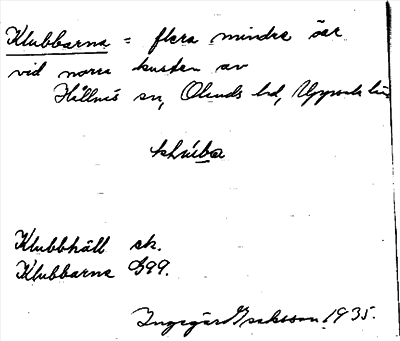 Klubbarna = flera mindre öar
vid norra kusten av
Hållnäs sn, Olands hd, Uppsala län
Klubbhäll sk.
Klubbarne G99.
Ingegärd Isaksson 1935.